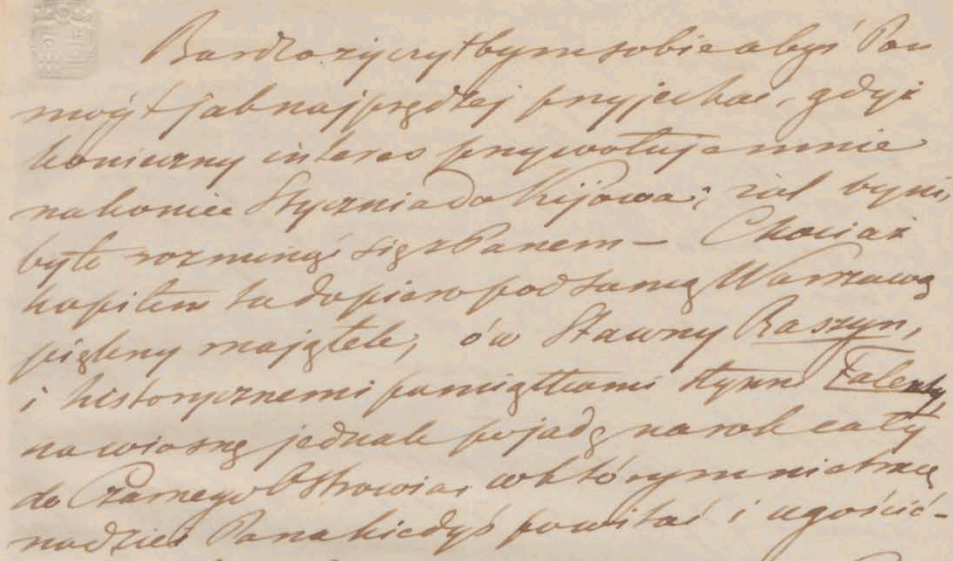 Bardzo życzyłbym sobie abyś Pan
mógł jak najprędzej przyjechać, gdyż
konieczny interes przywołuje mnie
na koniec Stycznia do Kijowa; żal bymi
było rozminąć się z Panem – Chociaż
kupiłem tu dopiero pod samą Warszawą
piękny majątek, ów Sławny Raszyn,
i historycznemi pamiątkami słynne Falenty,
na wiosnę jednak pojadę na rok cały
do Czarnego Ostrowia, w którym nie tracę
nadziei Pana kiedyś powitać i ugościć –